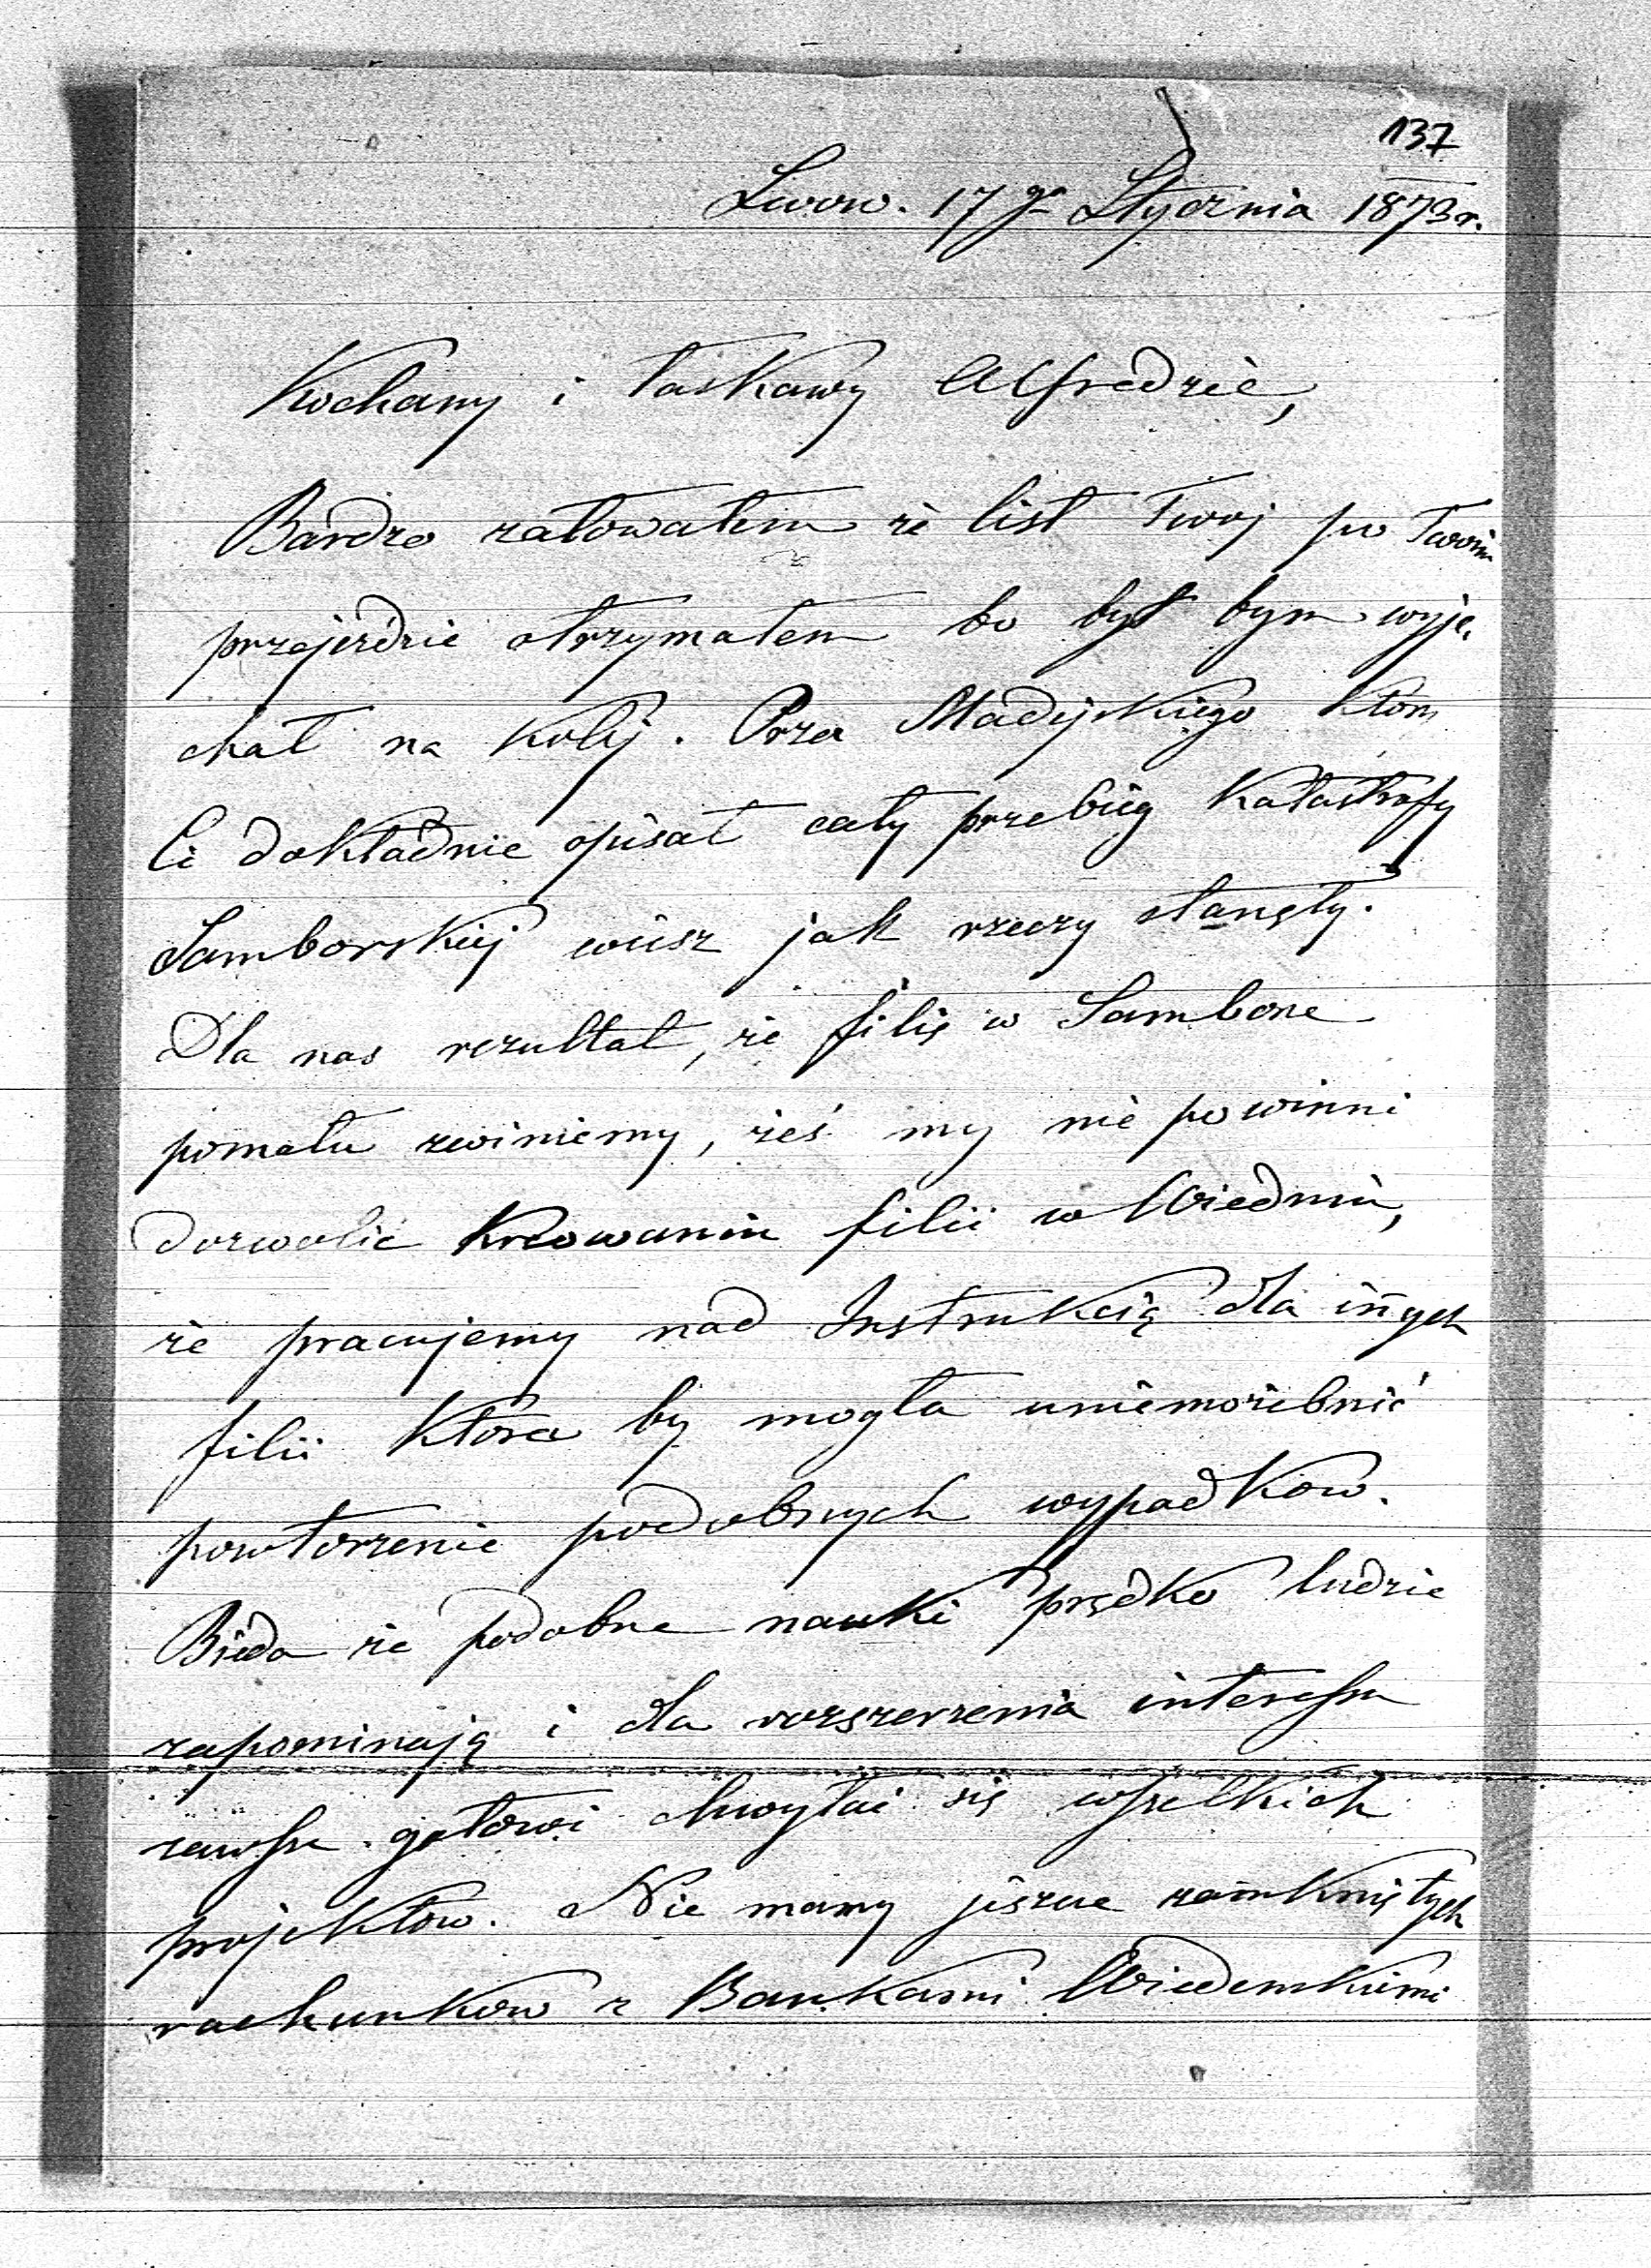 137
Lwow. 17go Stycznia 1873 r.
Kochany i łaskawy Alfredzie,
Bardzo załowałem że list Twoj po Twoim
przejezdzie otrzymałem bo był bym wyje,
chał na kolij. Przez Madejskiego ktory
Ci dokładnie opisał cały przebieg katastrofy
Samborskiej wiesz jak rzeczy stanęły.
Dla nas rezultat, że filię w Samborze
pomału zwiniemy, żeś my nie powinni
dozwolić kreowaniu filii w Wiedniu,
że pracujemy nad Instrukcią dla iñych
filii ktora by mogła uniemożebnić
powtorzenie podobnych wypadkow.
Bieda że podobne nauki prędko ludzie
zapominają i dla rozszerzenia interessu
zawsze gotowi chwytać się wszelkich
projektow. Nie mamy jeszcze zamkniętych
rachunkow z Bankami Wiedenskiemi